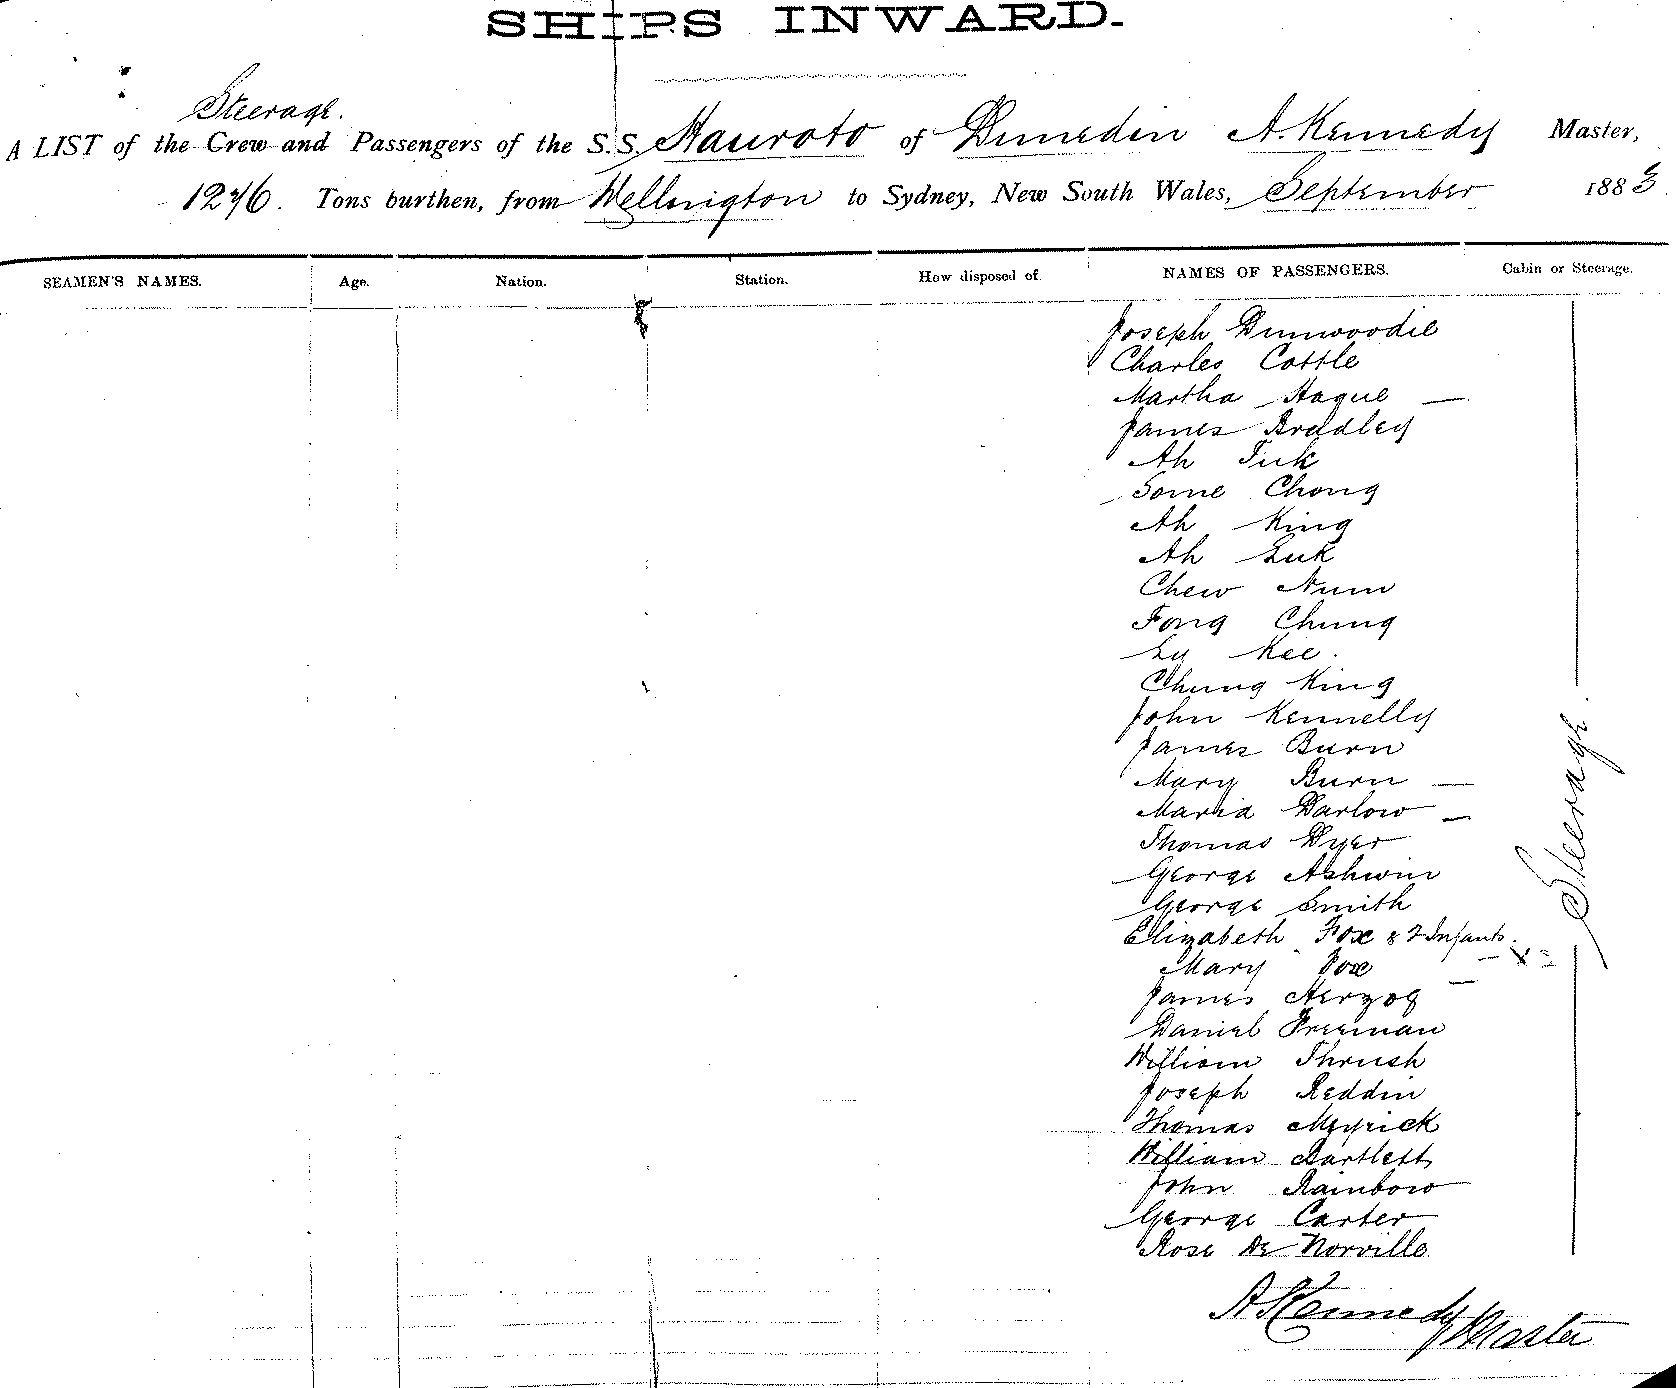 SHIPS INWARD.
Steerage.
A LIST of the Crew and Passengers of the S.S. Hauroto of Dunedin A. Kennedy Master,
1276. Tons burthen, from Wellington to Sydney, New South Wales, September 1883
SEAMEN'S NAMES. Age. Nation. Station. How disposed of. NAMES OF PASSENGERS. Cabin or Steerage.
Joseph Dunwoodie
Charles Cottle
Martha Hague —
James Bradley
Ah Tuk
Some Chong
Ah King
Ah Luk
Chew Num
Fong Chung
Ly Kee.
Chung King
John Kennelly
James Burn
Mary Burn —
Maria Darlow —
Thomas Dyer
George Ashwin
George Smith
Elizabeth Fox & 2 Infants.
Mary Fox —
James Herzog
Daniel Freeman
William Thrush
Joseph Reddin
Thomas Meyrick
William Bartlett
John Rainbow
George Carter
Rose De Norville
Steerage.
A Kennedy Master